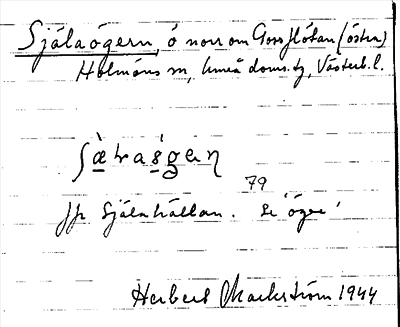 Själaögern, ö norr om Gross flötan (östra)
Holmöns sn, Umeå doms. tg, Västerb. l.
79
jfr Själahällan. Se 'öger'
Herbert Markström 1944